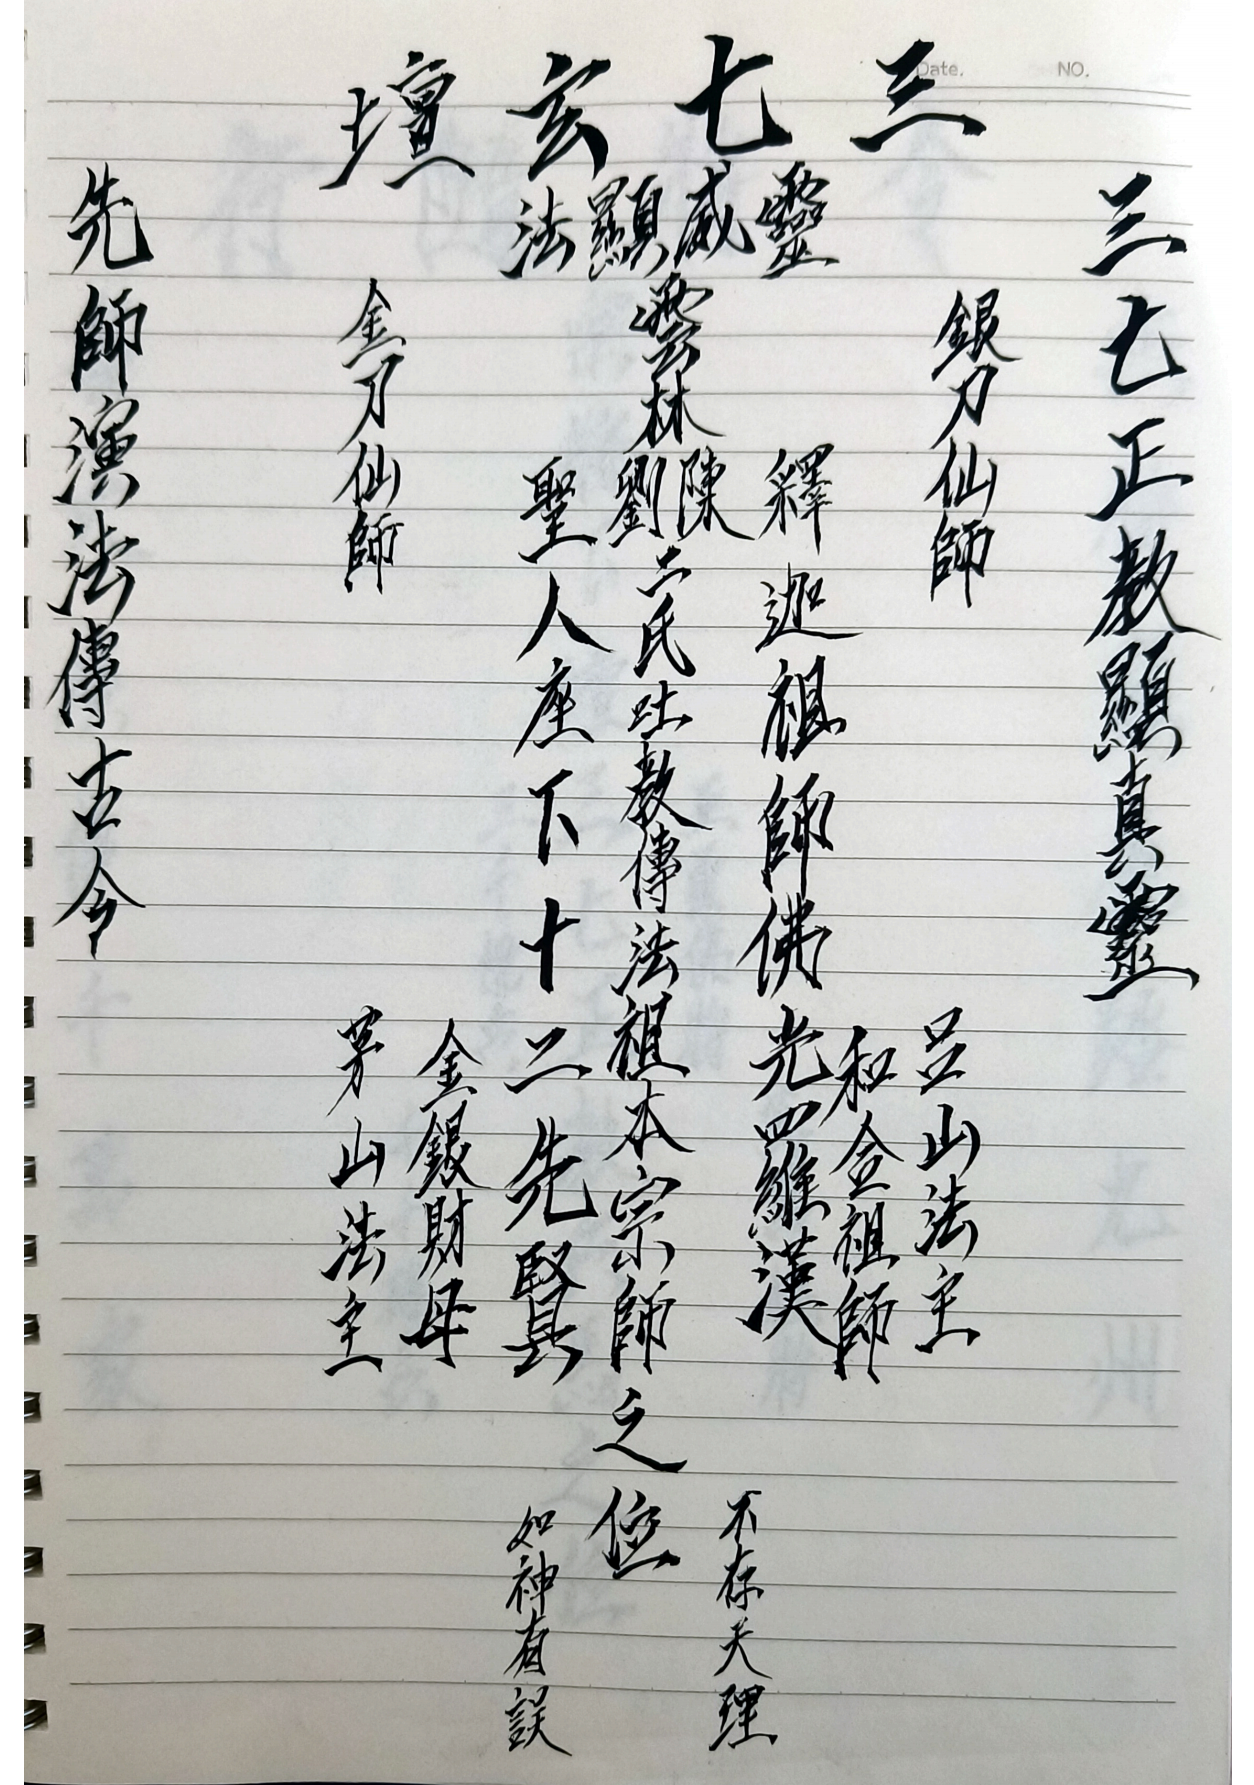 三七玄壇
靈威顯法
三七正教顯真靈
銀刀仙師
呂山法主
和合祖師
釋迦祖師佛光四維漢
不存天理
雲林陳劉二氏吐教傳法祖本宗師之位
聖人座下十二先賢
如神有誤
金銀財母
金刀仙師
茅山法主
先師演法傳古今
Date.
NO.